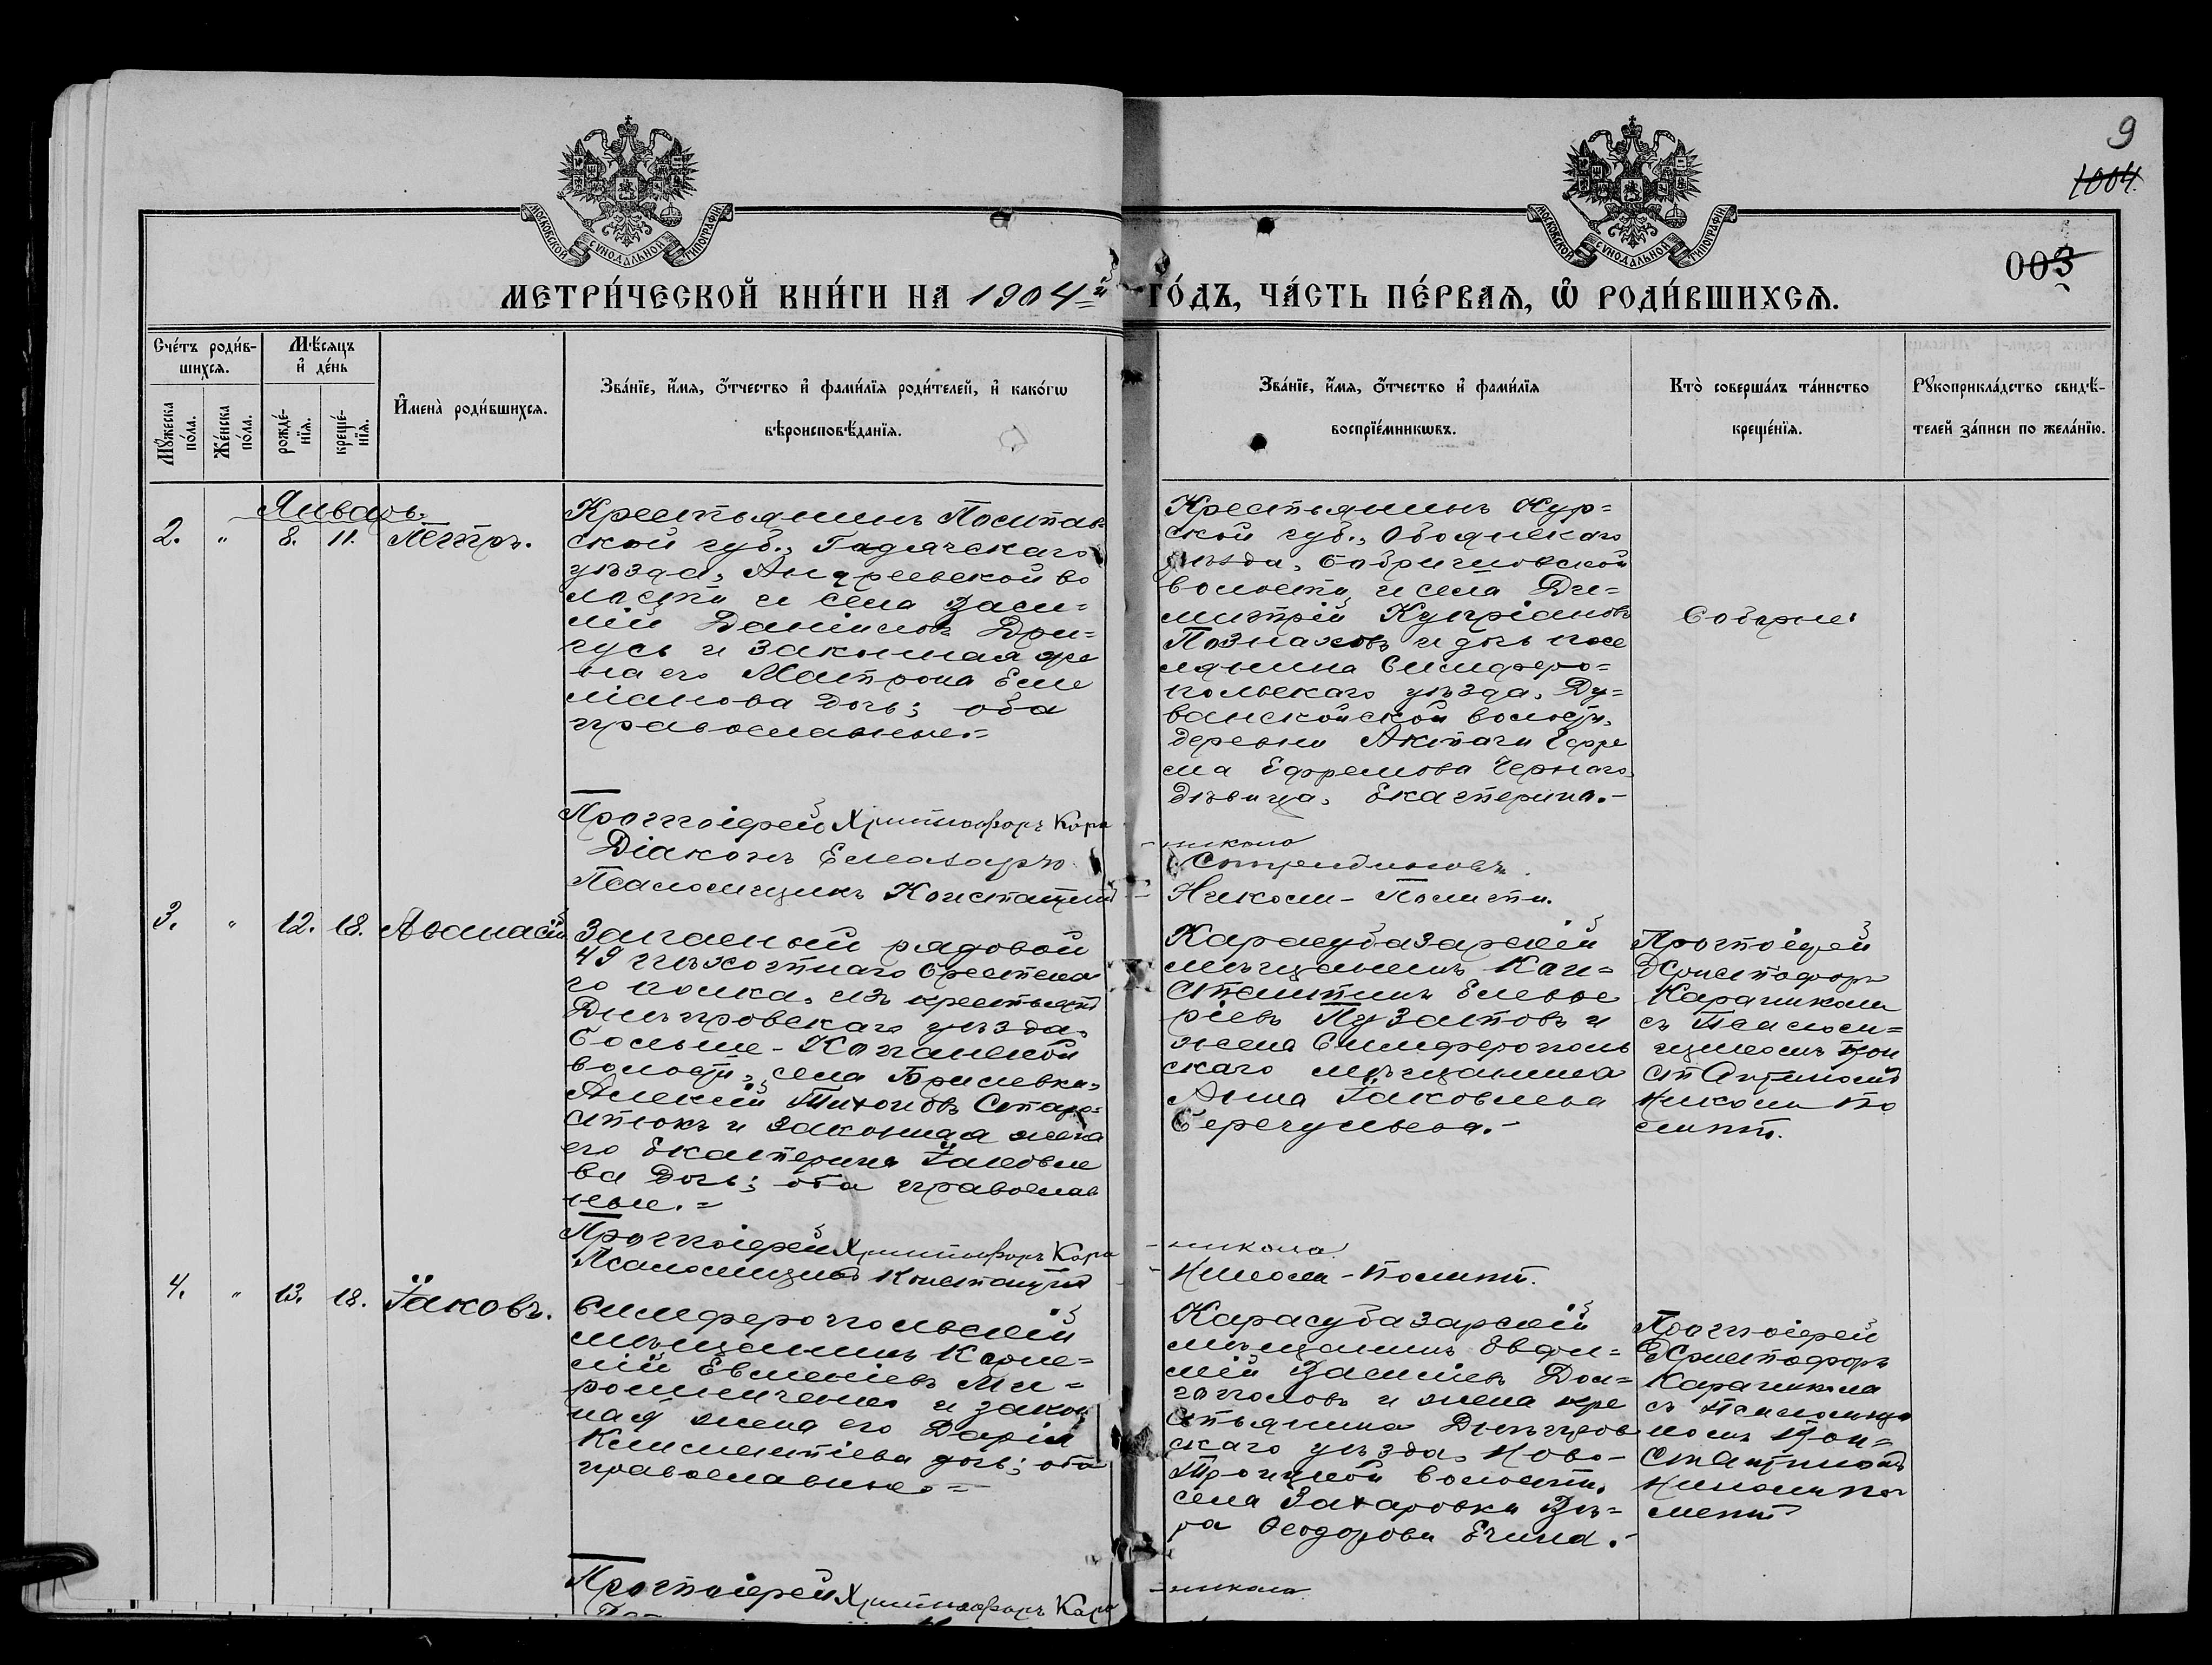 9
1004.
003
МОСКОВСКОЙ СѴНОДАЛЬНОЙ ТИПОГРАФІИ
МОСКОВСКОЙ СѴНОДАЛЬНОЙ ТИПОГРАФІИ
МЕТРИ́ЧЕСКОЙ КНИ́ГИ НА 1904й ГО́ДЪ, ЧА́СТЬ ПЕ́РВАЯ, Ѡ РОДИ́ВШИХСЯ.
Сче́тъ роди́в-
шихся.
Мѣ́сяцъ
и де́нь
Мꙋ́жеска по́ла.
Же́нска по́ла.
рожде́-нїя.
креще́-нїя.
Имена̀ роди́вшихся.
Зва́нїе, и́мя, о́тчество и фами́лїя роди́телей, и како́гѡ
вѣроисповѣ́данїя.
Зва́нїе, и́мя, о́тчество и фами́лїя
воспрїе́мникѡвъ.
Кто̀ соверша́лъ та́инство
креще́нїя.
Рꙋкоприкла́дство свидѣ́-
телей за́писи по жела́нїю.
Январь.
2. " 8. 11. Петръ.
Крестьянинъ Полтав-
ской губ., Гадячскаго
уѣзда, Андреевской во
лости и села Васи-
лій Даніиловъ Дри-
гусь и законная же
на его Матрона Еми
ліанова дочь; оба
православные.=
Крестьянинъ Кур=
ской губ., Обоянскаго
уѣзда,
волости и села Ди=
митрій Купріановъ
Познаховъ и дочь посе
лянина Симферо=
польскаго уѣзда, Ду=
ванкойской волости,
деревни Актачи Ефре
ма Ефремова Чернаго
дѣвица, Екатерина.-
Тоже
Протоіерей Христофоръ Кара
-никола
Діаконъ Елеазаръ
Спирндиновъ.
Псаломщикъ Константинъ
- Николи-Полити.
3. " 12. 18. Аѳанасій
Запасный рядовой
49 пѣхотнаго Брестска
го полка, изъ крестьянъ
Днѣпровскаго уѣзда,
Больше-Копанской
волости, села Бриловки,
Алексій Тихоновъ Старо-
стюкъ и законная жена
его Екатерина Іаковле
ва дочь; оба православ
ные.=
Карасубазарскій
мѣщанинъ Кон=
стантинъ Елевѳе
ріевъ Пузантовъ и
жена Симферополь
скаго мѣщанина
Анна Іаковлева
Берегульева.-
Протоіерей
Христофоръ
Карагникола
съ Псалом=
щикомъ Кон
стантиномъ
Николи По
лити.
Протоіерей Христофоръ Кара
-никола.
Псаломщикъ Константинъ
- Николи-Полити.
4. " 13. 18. Іаковъ.
Симферопольскій
мѣщанинъ Корни=
лій Евменіевъ Ми=
рошниченко и закон
ная жена его Дарія
Климентіева дочь; оба
православные.=
Карасубазарскій
мѣщанинъ Евфи=
мій Василіевъ Дол=
гополовъ и жена кре
стьянина Днѣпров
скаго уѣзда, Ново-
Троицкой волости,
села Захаровки Вѣ=
ра Ѳеодорова Ечина.-
Протоіерей
Христофоръ
Карагникола
съ Псаломщи
комъ Кон=
стантиномъ
Николи По
лити
Протоіерей Христофоръ Кара
-никола